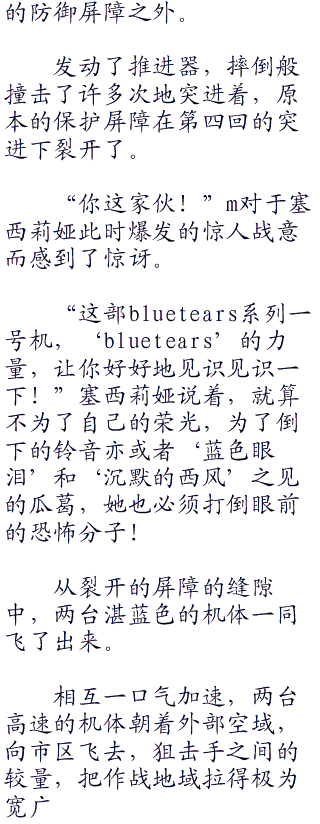 的防御屏障之外。
发动了推进器，摔倒般
撞击了许多次地突进着，原
本的保护屏障在第四回的突
进下裂开了。
“你这家伙！”m对于塞
西莉娅此时爆发的惊人战意
而感到了惊讶。
“这部bluetears系列一
号机，‘bluetears’的力
量，让你好好地见识见识一
下！”塞西莉娅说着，就算
不为了自己的荣光，为了倒
下的铃音亦或者‘蓝色眼
泪’和‘沉默的西风’之见
的瓜葛，她也必须打倒眼前
的恐怖分子！
从裂开的屏障的缝隙
中，两台湛蓝色的机体一同
飞了出来。
相互一口气加速，两台
高速的机体朝着外部空域，
向市区飞去，狙击手之间的
较量，把作战地域拉得极为
宽广